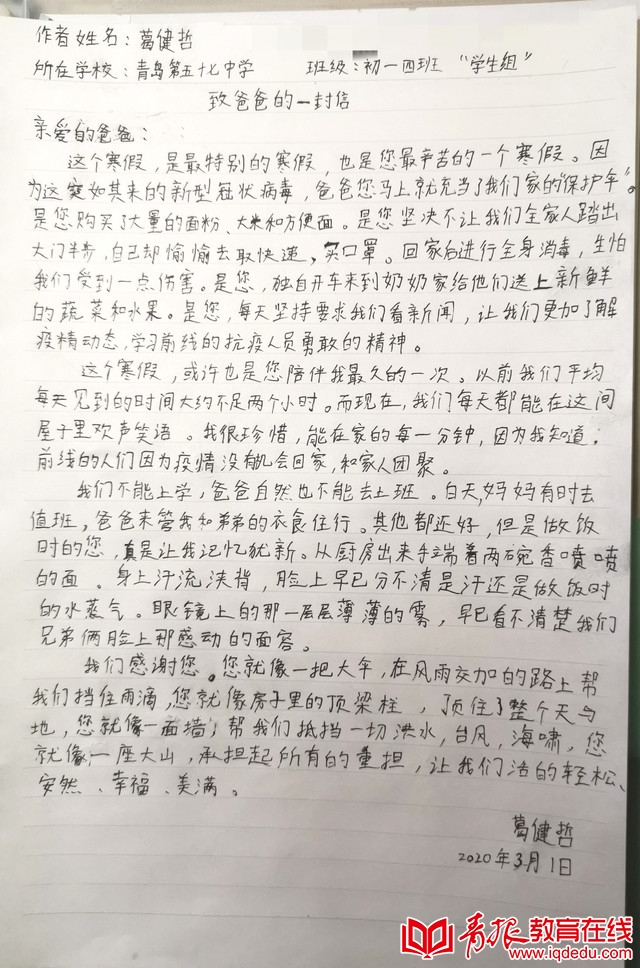 作者姓名：葛健哲
所在学校：青岛第五十七中学 班级：初一四班 “学生组”
致爸爸的一封信
亲爱的爸爸：
这个寒假，是最特别的寒假，也是您最辛苦的一个寒假。因
为这突如其来的新型冠状病毒，爸爸您马上就充当了我们家的“保护伞”。
是您购买了大量的面粉、大米和方便面。是您坚决不让我们全家人踏出
大门半步，自己却偷偷去取快递，买口罩。回家后进行全身消毒，生怕
我们受到一点伤害。是您，独自开车来到奶奶家给他们送上新鲜
的蔬菜和水果。是您，每天坚持要求我们看新闻，让我们更加了解
疫情动态，学习前线的抗疫人员勇敢的精神。
这个寒假，或许也是您陪伴我最久的一次。以前我们平均
每天见到的时间大约不足两个小时。而现在，我们每天都能在这间
屋子里欢声笑语。我很珍惜，能在家的每一分钟，因为我知道：
前线的人们因为疫情没有机会回家，和家人团聚。
我们不能上学，爸爸自然也不能去上班。白天，妈妈有时去
值班，爸爸来管我和弟弟的衣食住行。其他都还好，但是做饭
时的您，真是让我记忆犹新。从厨房出来手端着两碗香喷喷
的面。身上汗流浃背，脸上早已分不清是汗还是做饭时
的水蒸气。眼镜上的那一层层薄薄的雾，早已看不清楚我们
兄弟俩脸上那感动的面容。
我们感谢您。您就像一把大伞，在风雨交加的路上帮
我们挡住雨滴，您就像房子里的顶梁柱，顶住了整个天与
地，您就像一面墙，帮我们抵挡一切洪水，台风，海啸，您
就像一座大山，承担起所有的重担，让我们活的轻松、
安然、幸福、美满。
葛健哲
2020年3月1日
青报教育在线
www.iqdedu.com